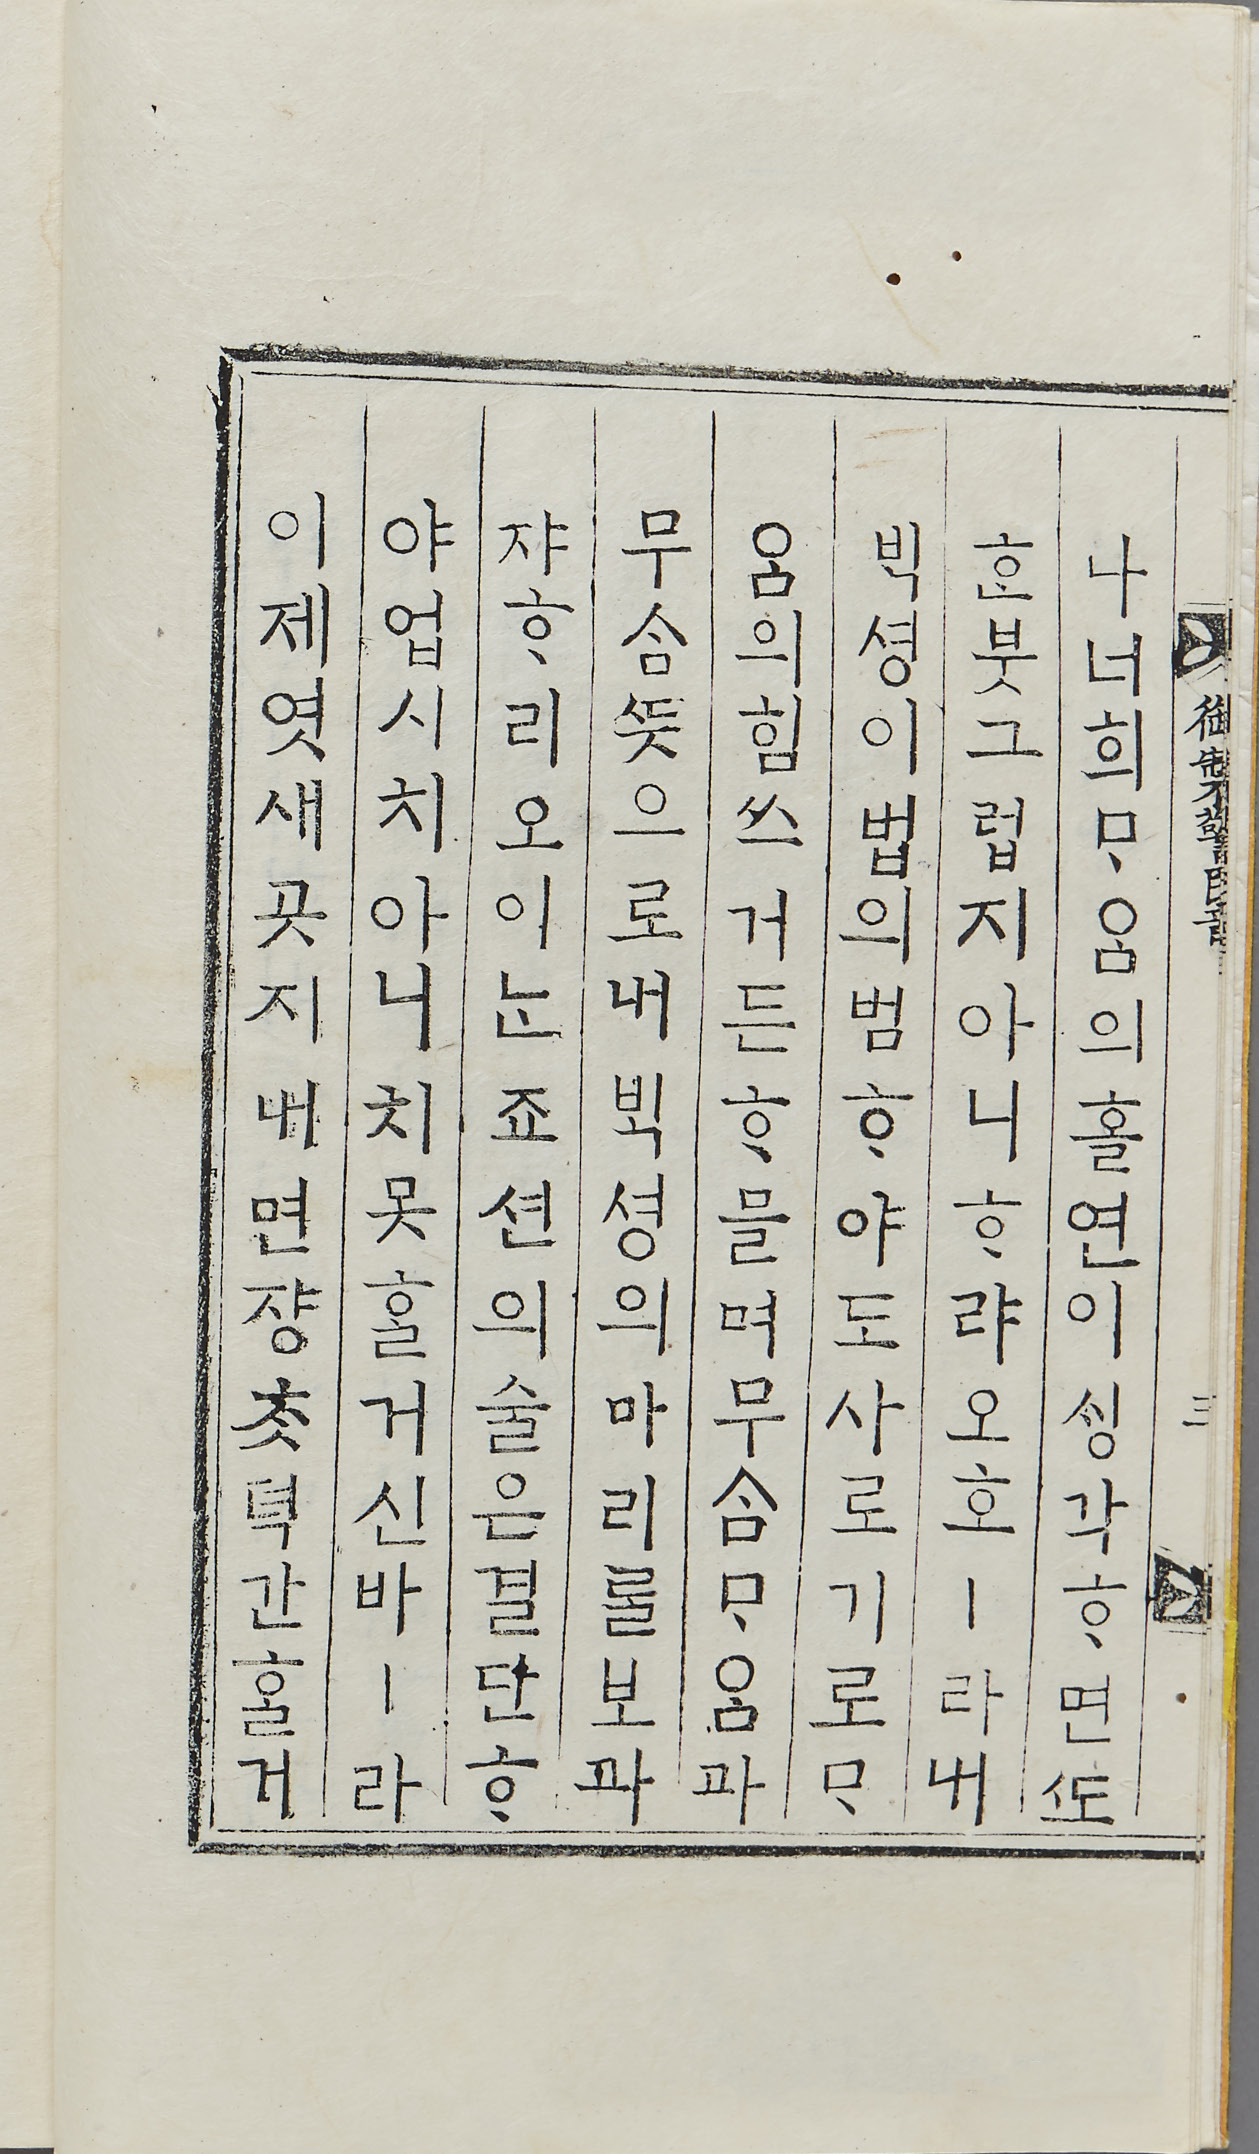 御製警民音 三
나너희ᄆᆞᄋᆞᆷ의홀연이ᄉᆡᆼ각ᄒᆞ면ᄯᅩ
ᄒᆞᆫ붓그럽지아니ᄒᆞ랴오호ㅣ라내
ᄇᆡᆨ셩이법의범ᄒᆞ야도사로기로ᄆᆞ
ᄋᆞᆷ의힘쓰거든ᄒᆞ믈며무ᄉᆞᆷᄆᆞᄋᆞᆷ과
무ᄉᆞᆷᄯᅳᆺ으로내ᄇᆡᆨ셩의마리ᄅᆞᆯ보과
쟈ᄒᆞ리오이ᄂᆞᆫ죠션의술은결단ᄒᆞ
야업시치아니치못ᄒᆞᆯ거신바ㅣ라
이제엿새곳지내면쟝ᄎᆞᆺ텩간ᄒᆞᆯ게